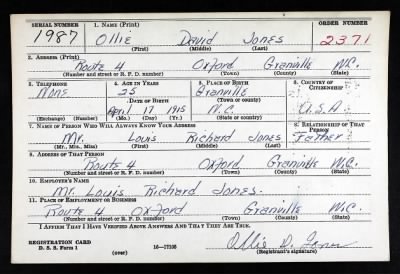 SERIAL NUMBER 1. NAME (Print) ORDER NUMBER
1987 Ollie David Jones 2371
(First) (Middle) (Last)
2. ADDRESS (Print)
Route 4 Oxford Granville N.C.
(Number and street or R. F. D. number) (Town) (County) (State)
3. TELEPHONE 4. AGE IN YEARS 5. PLACE OF BIRTH 6. COUNTRY OF CITIZENSHIP
None 25 Granville
DATE OF BIRTH (Town or county)
April 17 1915 N.C. U.S.A.
(Exchange) (Number) (Mo.) (Day) (Yr.) (State or country)
7. NAME OF PERSON WHO WILL ALWAYS KNOW YOUR ADDRESS 8. RELATIONSHIP OF THAT PERSON
Mr. Louis Richard Jones Father
(Mr., Mrs., Miss) (First) (Middle) (Last)
9. ADDRESS OF THAT PERSON
Route 4 Oxford Granville N.C.
(Number and street or R. F. D. number) (Town) (County) (State)
10. EMPLOYER'S NAME
Mr. Louis Richard Jones.
11. PLACE OF EMPLOYMENT OR BUSINESS
Route 4 Oxford Granville N.C.
(Number and street or R. F. D. number) (Town) (County) (State)
I AFFIRM THAT I HAVE VERIFIED ABOVE ANSWERS AND THAT THEY ARE TRUE.
REGISTRATION CARD
D. S. S. Form 1 16—17105 Ollie D. Jones
(over) (Registrant's signature)